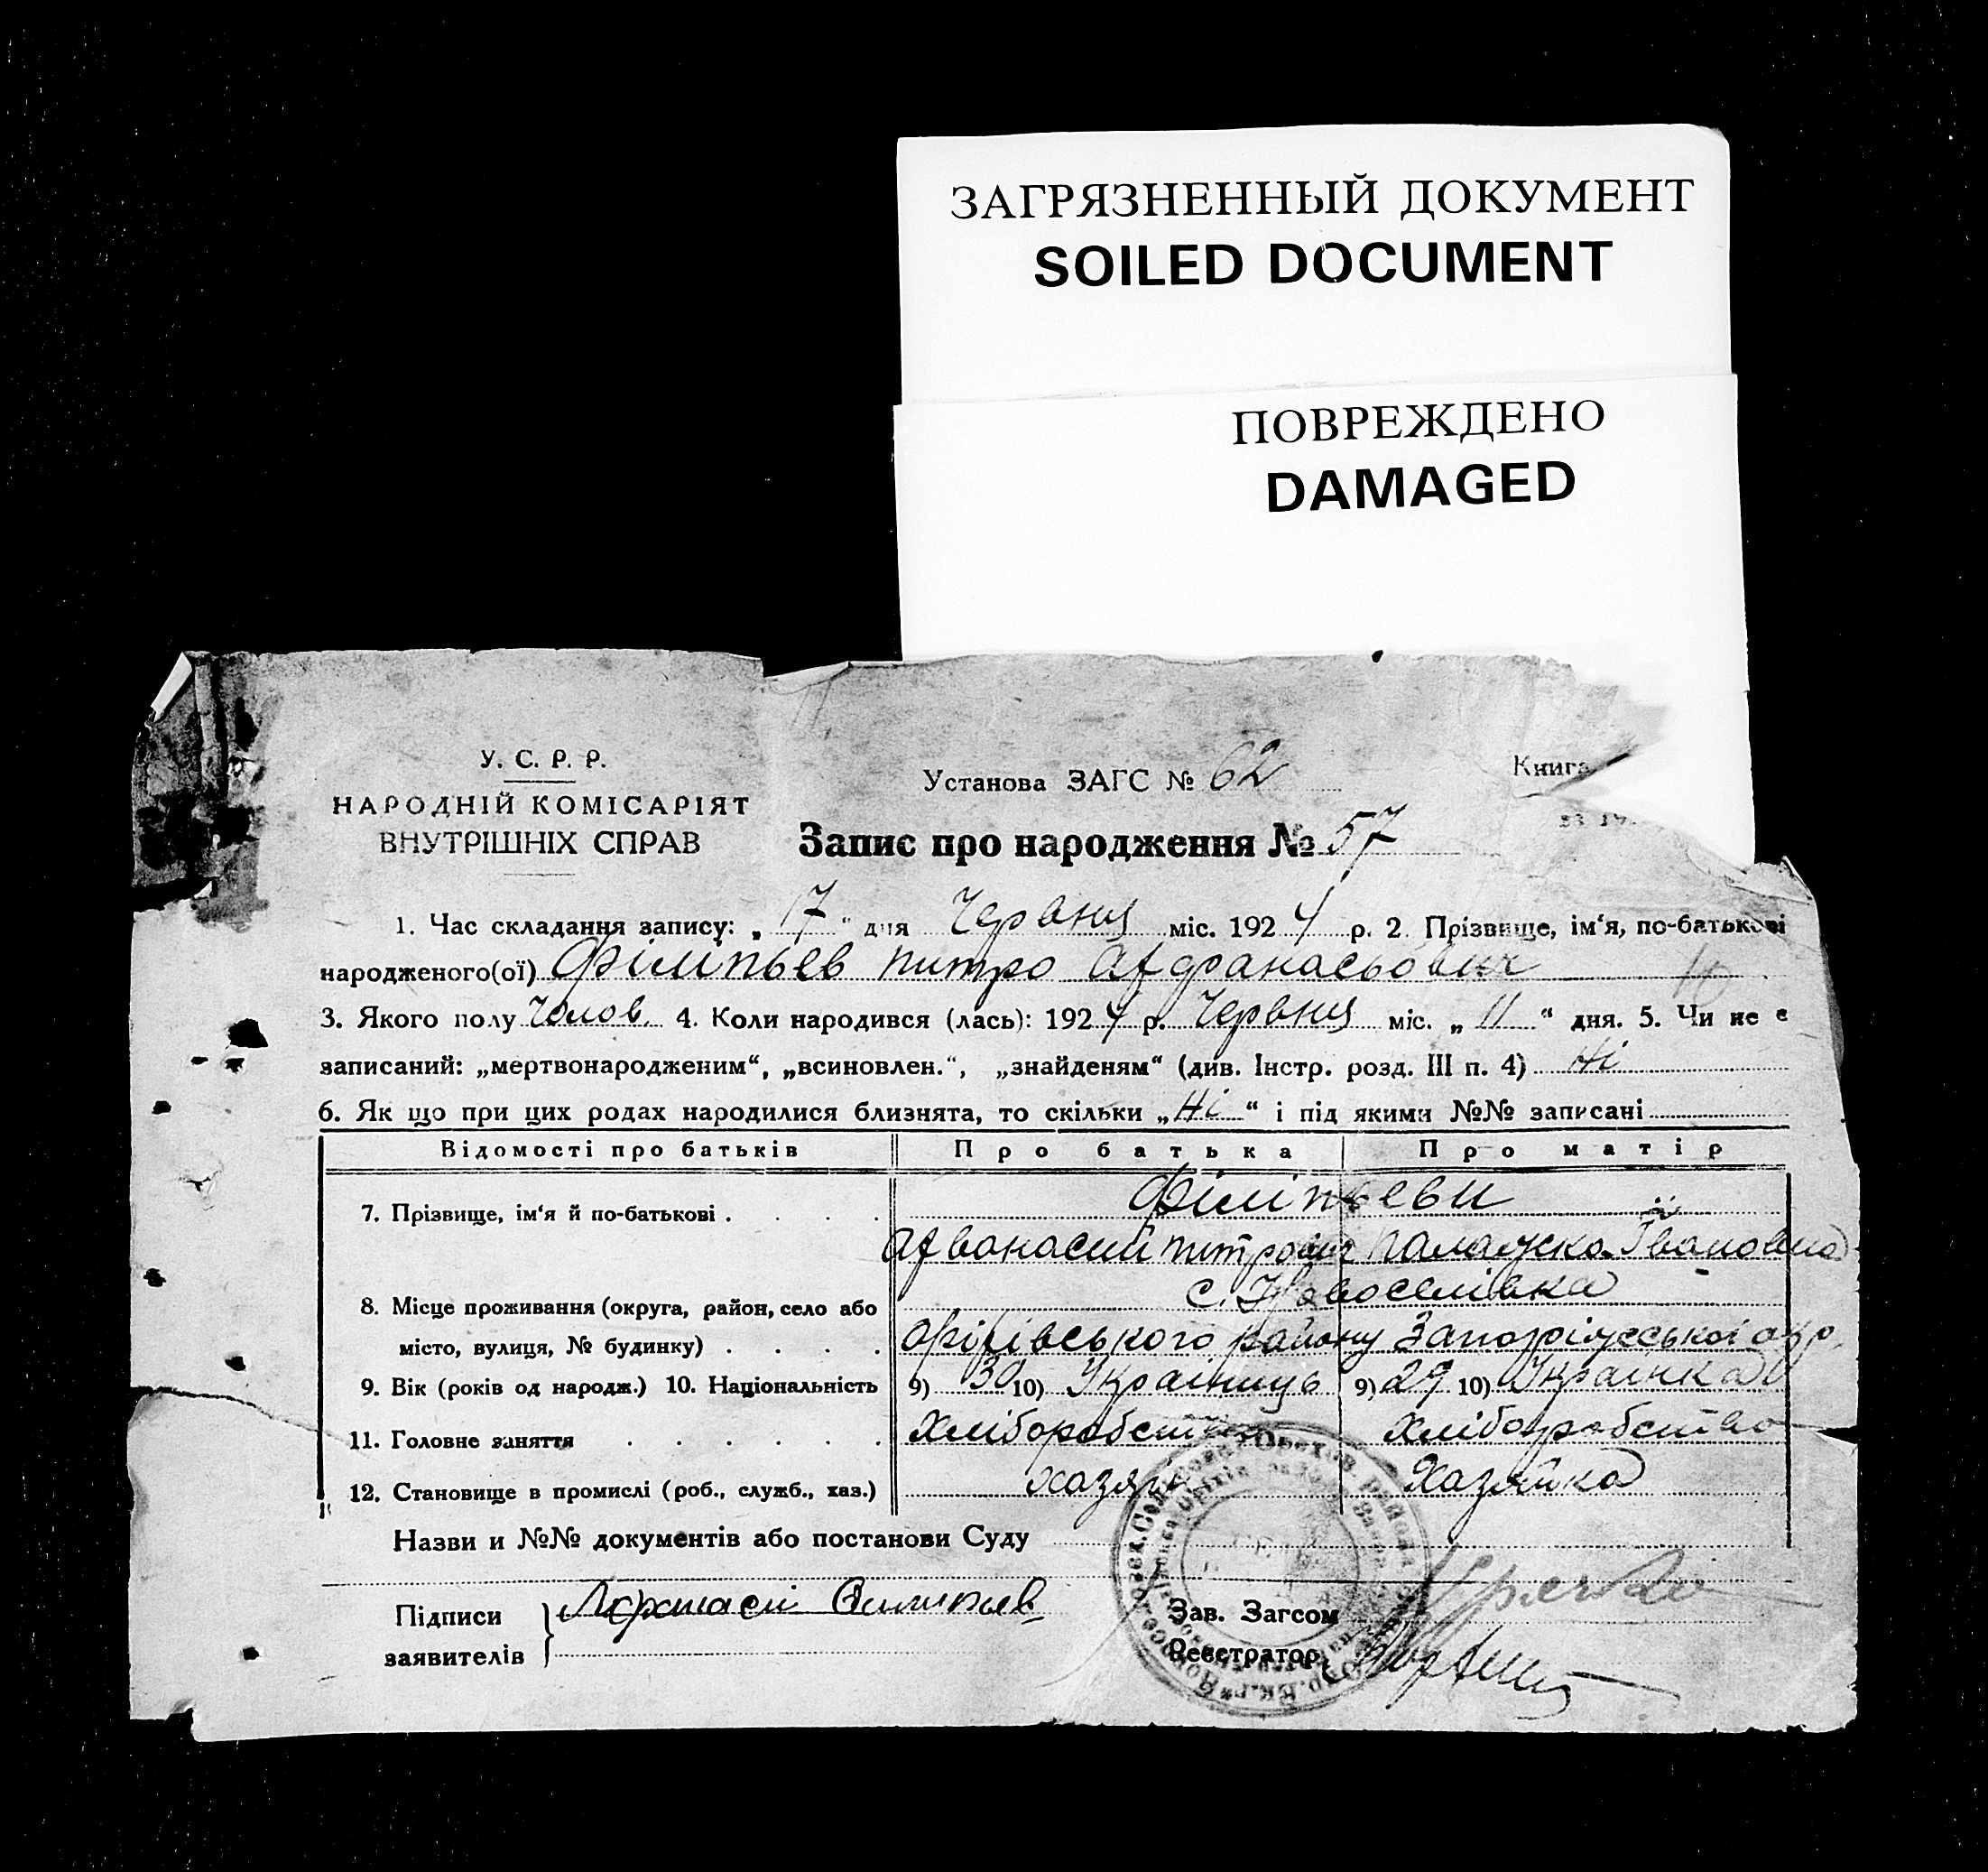 ЗАГРЯЗНЕННЫЙ ДОКУМЕНТ
SOILED DOCUMENT
ПОВРЕЖДЕНО
DAMAGED
У. С. Р. Р.
НАРОДНІЙ КОМІСАРІЯТ
ВНУТРІШНІХ СПРАВ
Установа ЗАГС № 62
Книга
Запис про народження № 57
1. Час складання запису: „17“ дня Червня міс. 1924 р. 2. Прізвище, ім‘я, по-батькові
народженого(ої) Філіпьев Питро Афанасьович
3. Якого полу Чолов. 4. Коли народився (лась): 1924 р. Червня міс. „11“ дня. 5. Чи не є
записаний: „мертвонародженим“, „всиновлен.“, „знайденям“ (див. Інстр. розд. III п. 4) Ні
6. Як що при цих родах народилися близнята, то скільки „Ні“ і під якими №№ записані
Відомості про батьків Про батька Про матір
7. Прізвище, ім‘я й по-батькові . . . . Філіпьеви
Питрович Івановна
с. Новоселівка
8. Місце проживання (округа, район, село або
місто, вулиця, № будинку) . . . . Оріхівського району Запорізської окр.
9. Вік (років од народж.) 10. Національність 9) 30 10) Українець 9) 29 10) Українка
11. Головне заняття . . . . . . Хліборобство Хліборобство
12. Становище в промислі (роб., служб., хаз.) хазяїн Хазяйка
Назви и №№ документів або постанови Суду
Підписи
заявителів
Зав. Загсом
Реєстратор